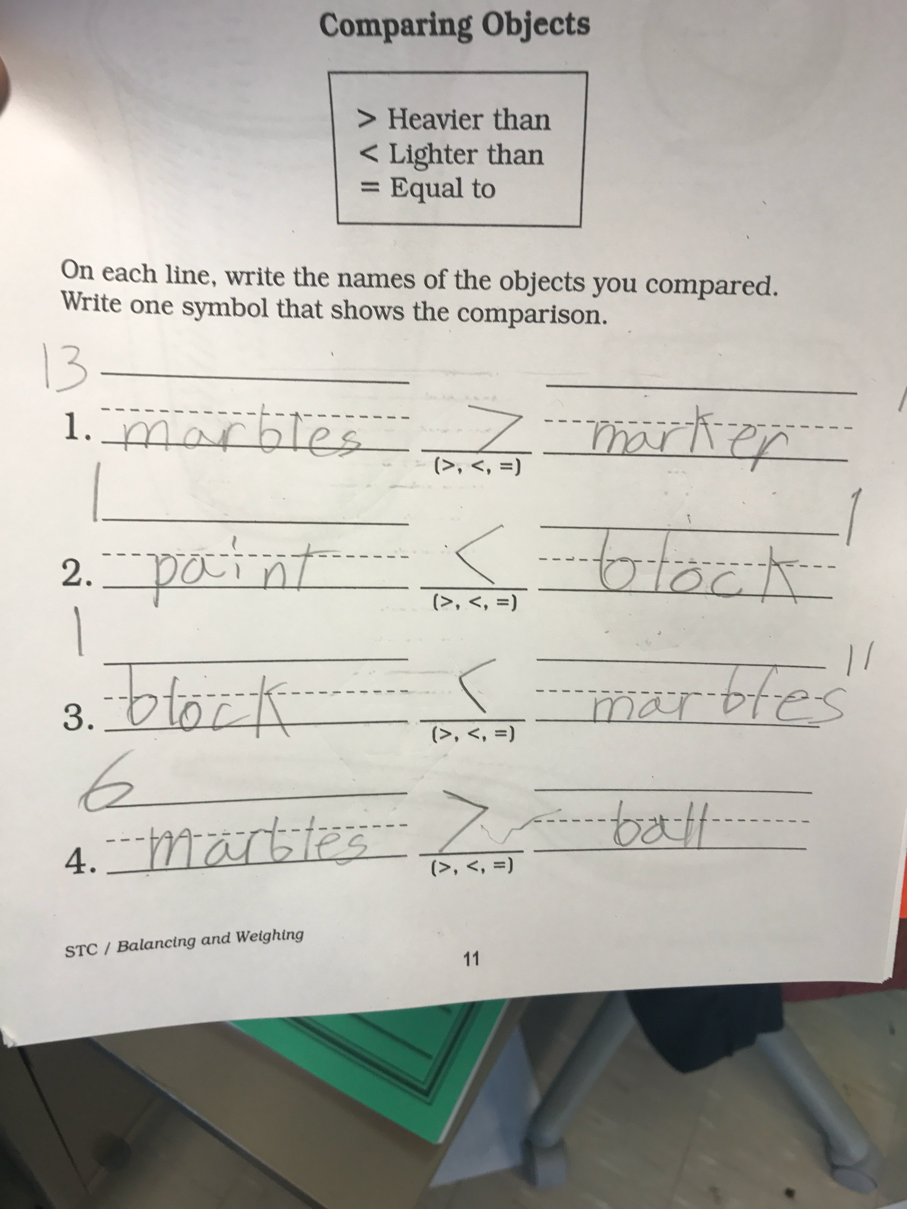 Comparing Objects
> Heavier than
< Lighter than
= Equal to
On each line, write the names of the objects you compared.
Write one symbol that shows the comparison.
13
1. marbles > marker
(>, <, =)
1 1
2. paint < block
(>, <, =)
1 11
3. block < marbles
(>, <, =)
6
4. marbles > ball
(>, <, =)
STC / Balancing and Weighing
11